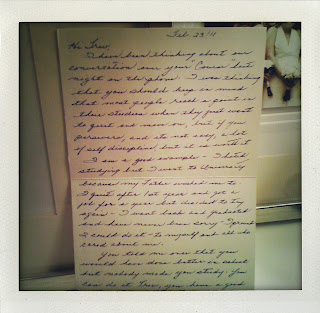 Feb 23/11
Hi Trev,
I have been thinking about our
conversation over your "Course" last
night on the phone. I was thinking
that you should keep in mind
that most people reach a point in
their studies when they just want
to quit and move on, but if you
persevere, and its not easy, a lot
of self discipline but it is worth it
I am a good example - I hated
studying but I went to University
because my Father wanted me to.
I quit after 1st year and got a
job for a year but decided to try
again - I went back and graduated
and have never been sorry - I proved
I could do it - to myself and all who
cared about me.
You told me once that you
would have done better in school
but nobody made you study. You
can do it Trev, you have a good